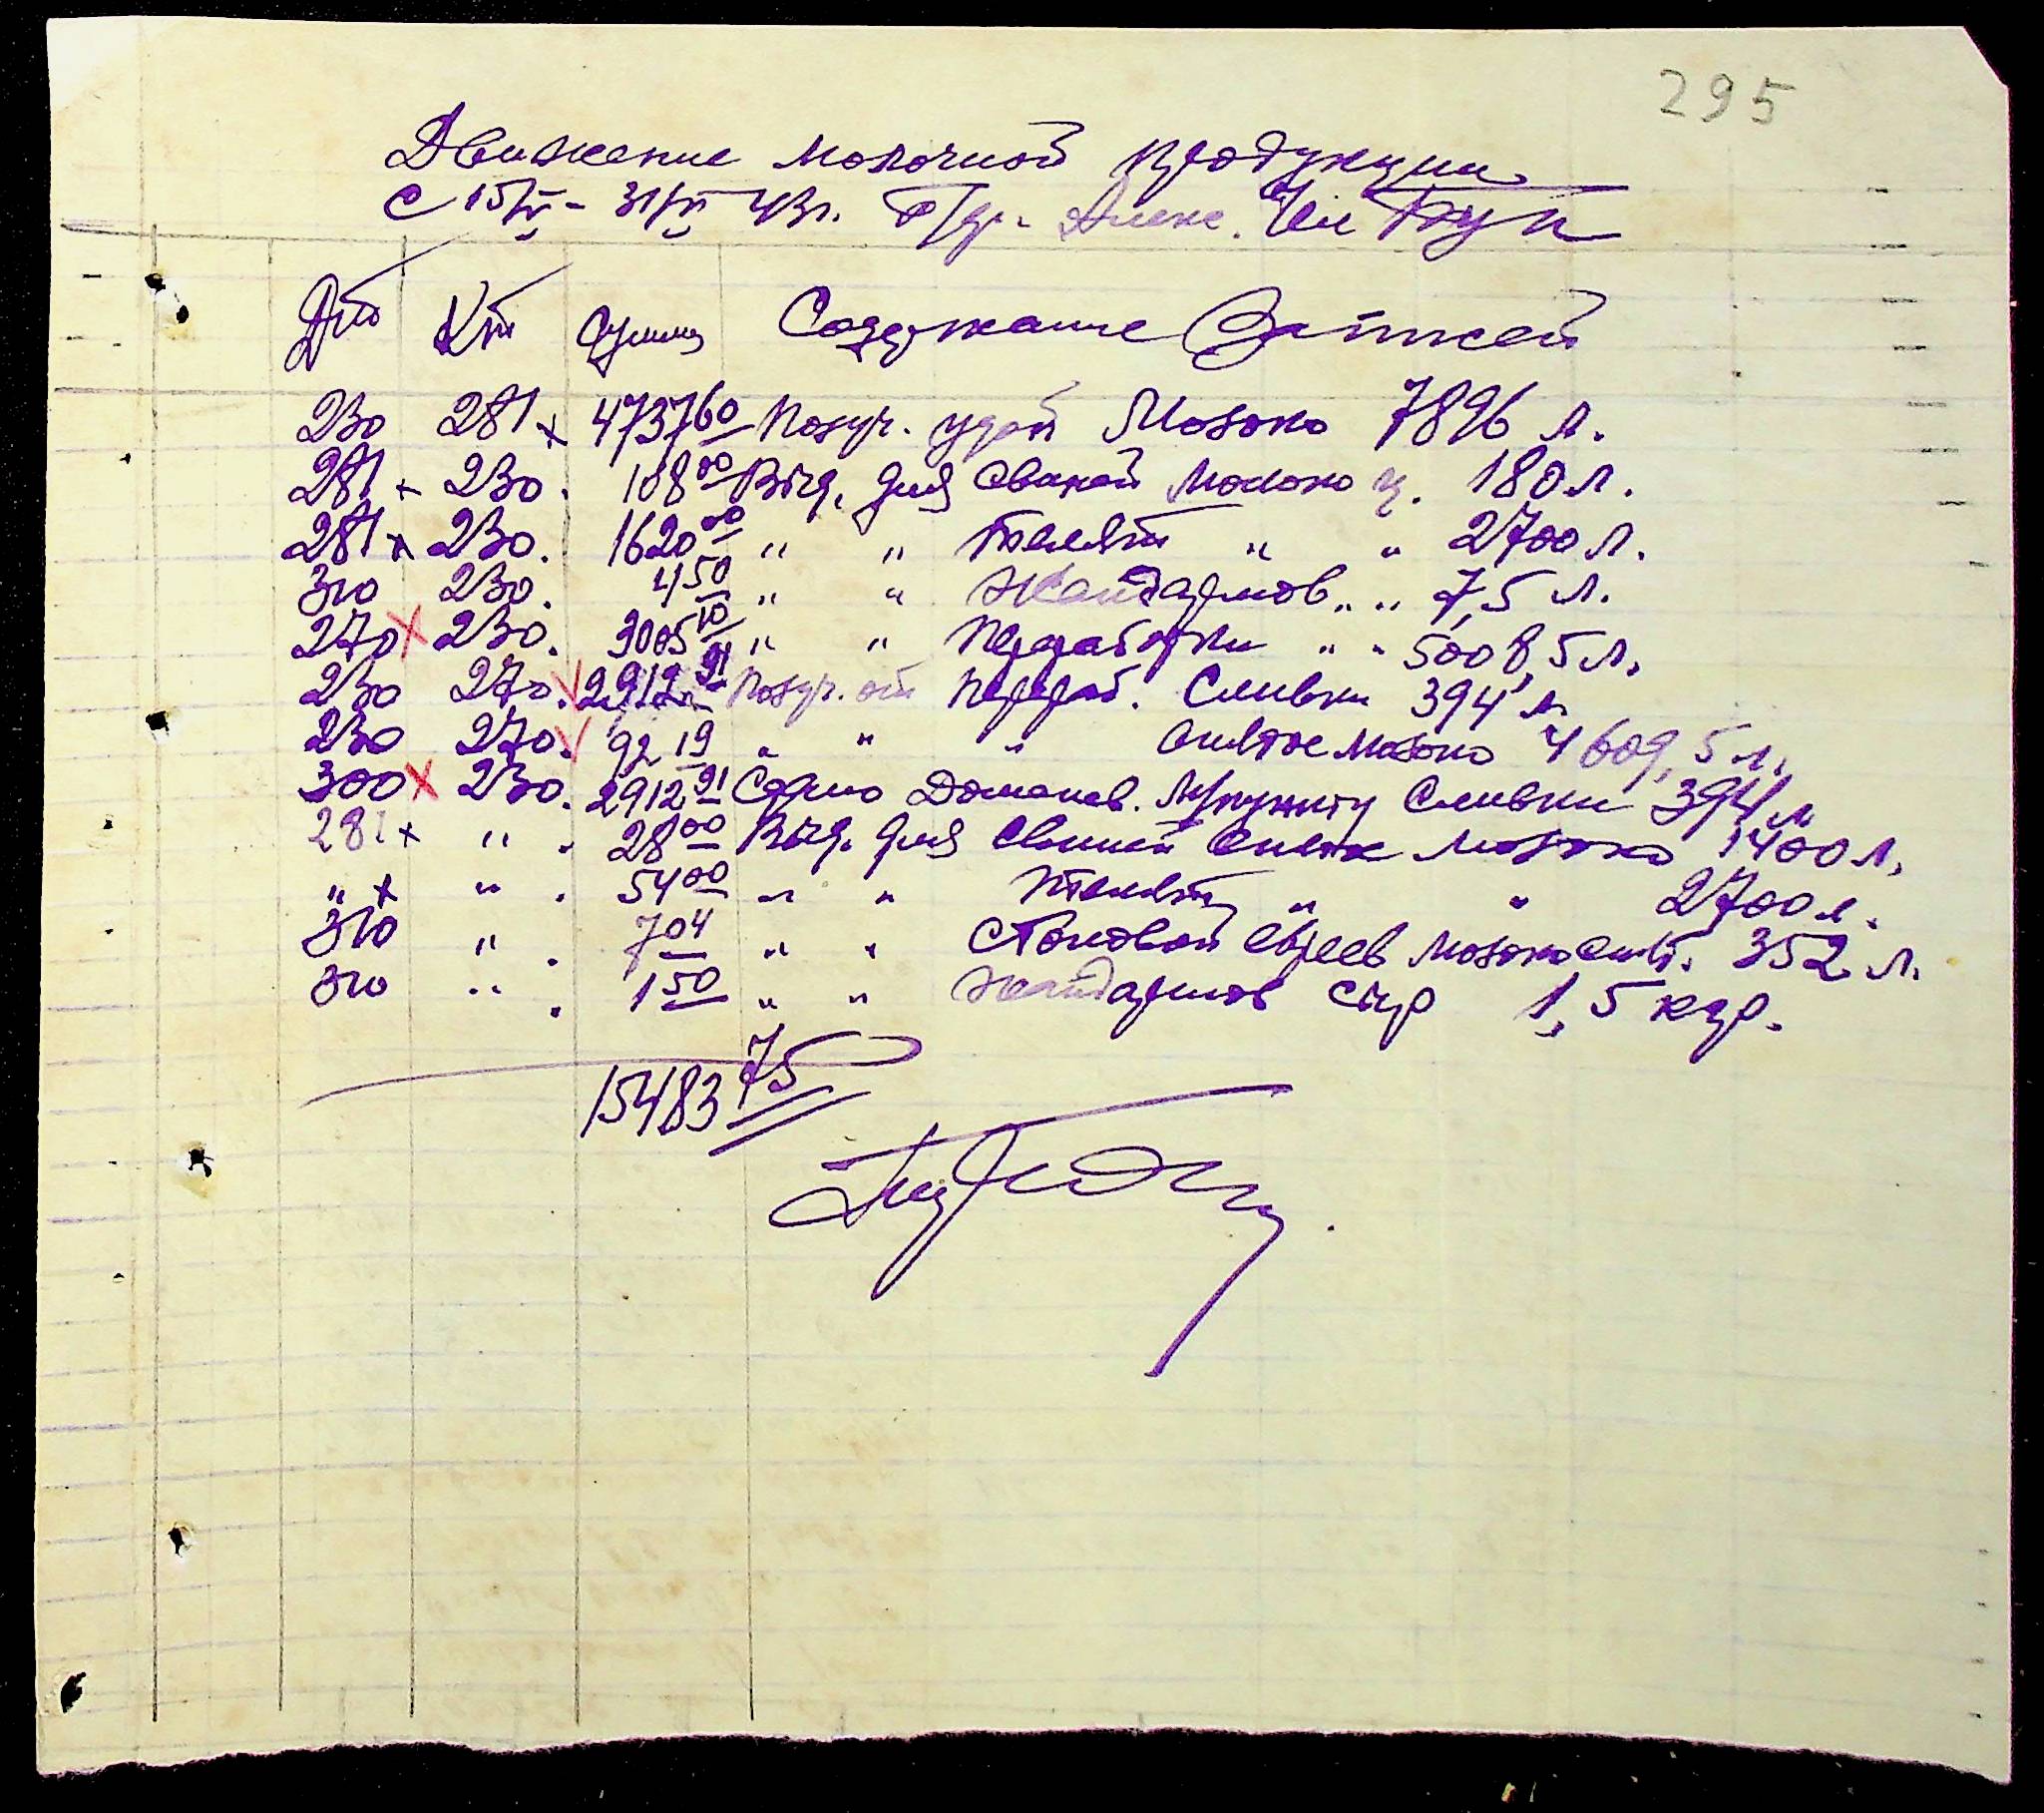 295
Движение молочной продукции
С 15/V - 31/V 43 г.
Дт Кт Сумма Содержание Записей
230 281 х 4737 60 Получ. удой Молоко 7896 л.
281 х 230. 108 00 Выд. для свиней Молоко ц. 180 л.
281 х 230. 1620 00 " " Телят " " 2700 л.
310 230. 4 50 " " Жандармов " " 7,5 л.
270 х 230. 3005 10 " " Переработки " " 5008,5 л.
230 270. 2912 91 Получ. от Перераб. Сливки 394 л.
230 270. 92 19 " " " Снятое молоко 4609,5 л.
300 х 230. 2912 91 Сдано Доманев. Сливки 394 л.
281 х " . 28 00 Выд. для Свиней Снятое молоко 1400 л.
" х " . 54 00 " " Телят " " 2700 л.
310 " . 7 04 " " Столовой евреев молоко снят. 352 л.
310 " . 1 50 " " Жандармов сыр 1,5 кгр.
15483 75